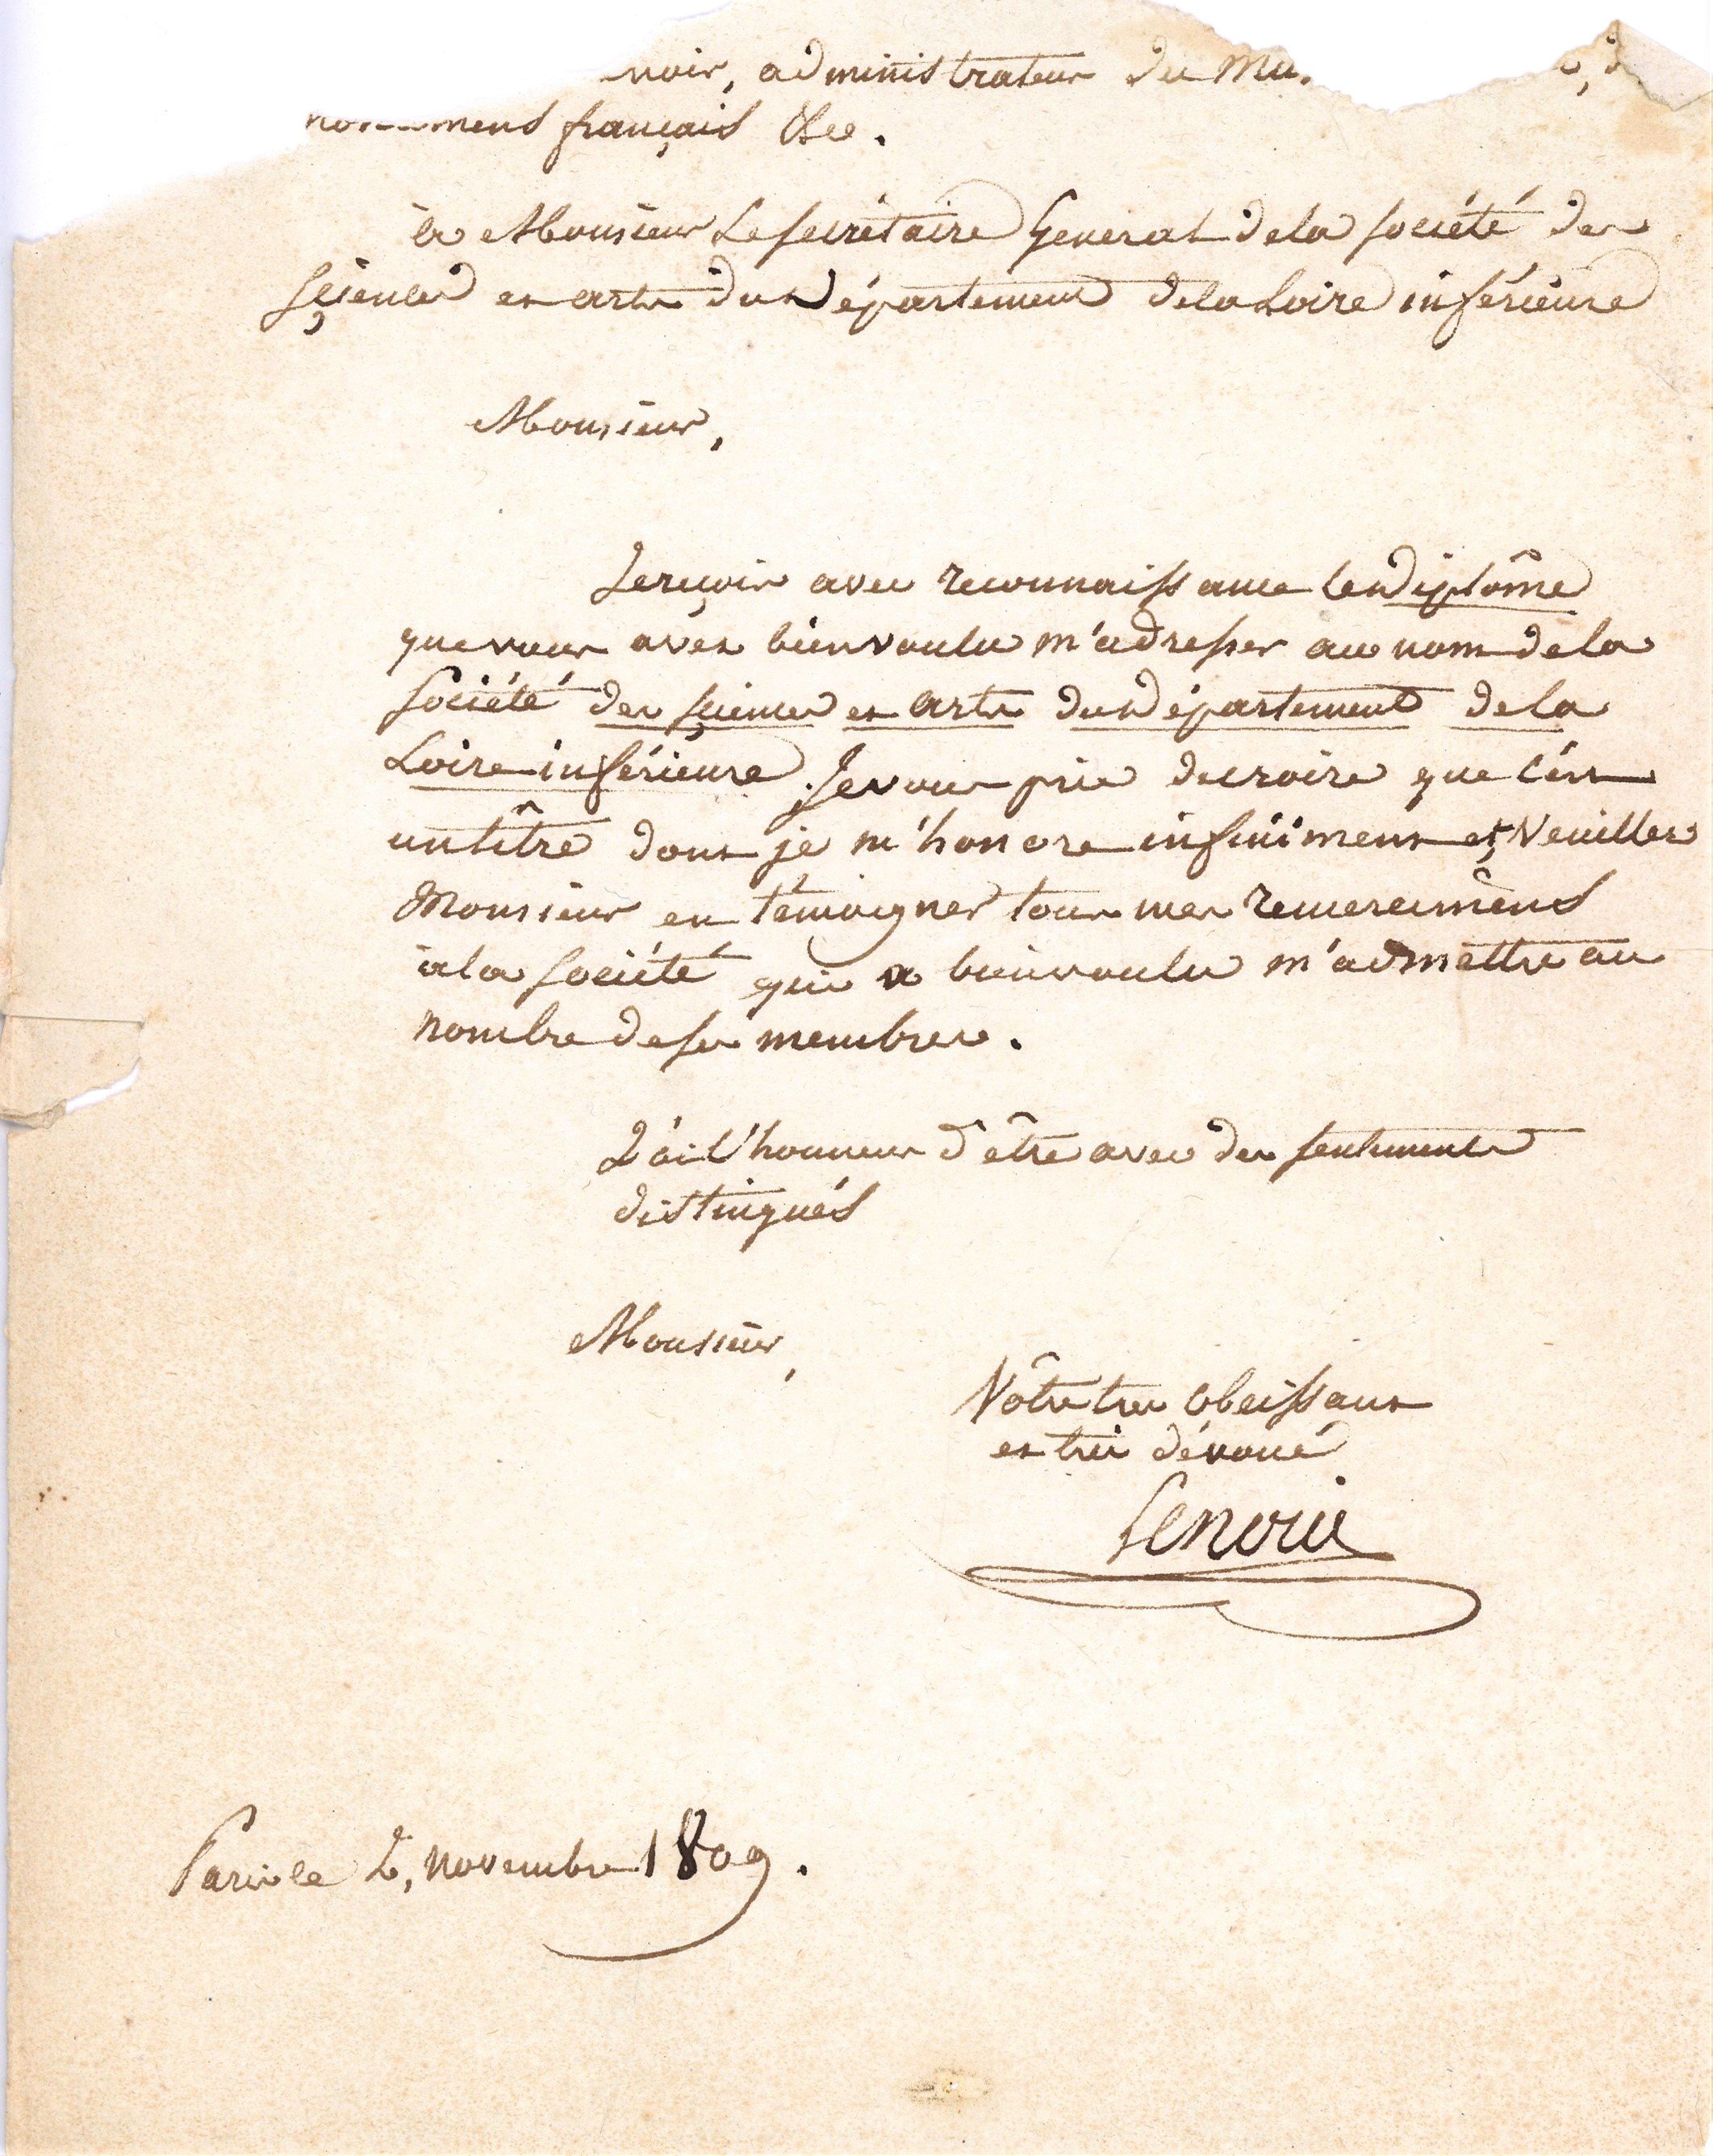 noir, administrateur du Mu
monumens français &ce.
à Monsieur Le secrétaire Général de la société des
sçiences et arts du Département de la Loire inférieure
Monsieur,
Je reçois avec reconnaissance le diplôme
que vous avez bien voulu m'adresser au nom de la
société des sçiences et arts du Département de la
Loire inférieure. Je vous prie de croire que c'est
un tître dont je m'honore infiniment et, Veuillez
Monsieur en témoigner tous mes remercimens
à la société qui a bien voulu m'admettre au
nombre de ses membres.
J'ai l'honneur d'être avec des sentiments
distingués
Monsieur,
Vôtre très obeissant
et très dévoué
Lenoir
Paris le 2, novembre 1809.